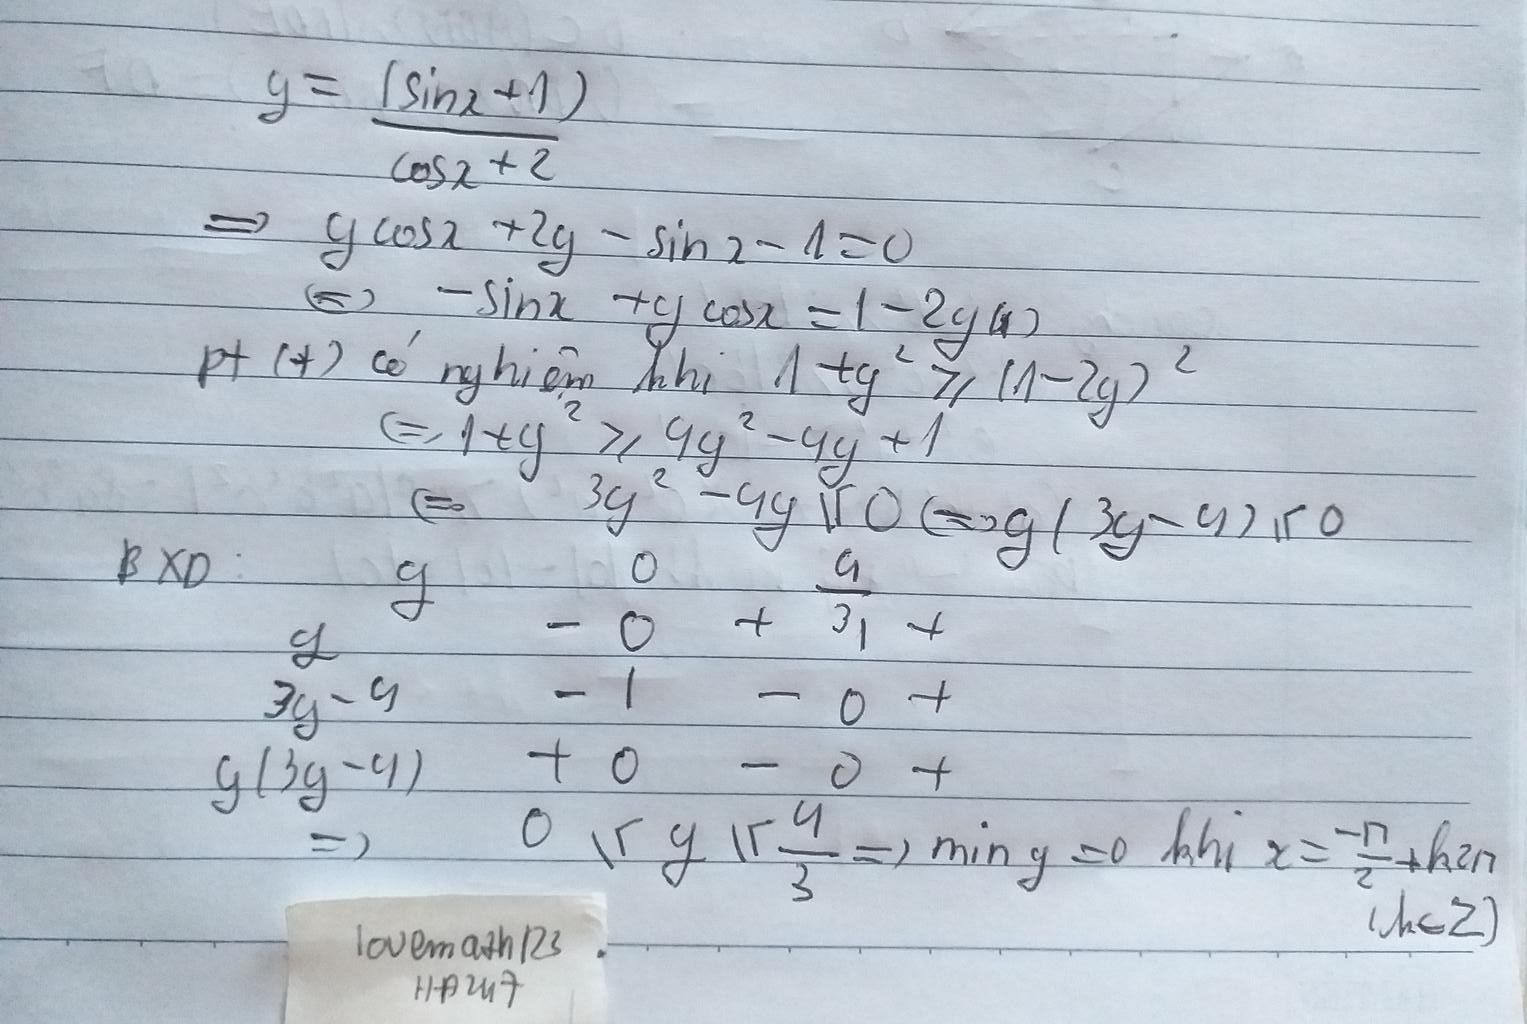 y = (sinx+1)
cosx+2
=> y cosx + 2y - sinx - 1 = 0
<=> -sinx + y cosx = 1 - 2y (*)
pt (*) có nghiệm khi 1 + y² ≥ (1-2y)²
<=> 1 + y² ≥ 4y² - 4y + 1
<=> 3y² - 4y ≤ 0 <=> y(3y-4) ≤ 0
BXD: y 0 4/3
y - 0 + | +
3y-4 - | - 0 +
y(3y-4) + 0 - 0 +
=> 0 ≤ y ≤ 4/3 => min y = 0 khi x = -π/2 + k2π
(k∈Z)
lovemath123
HA247